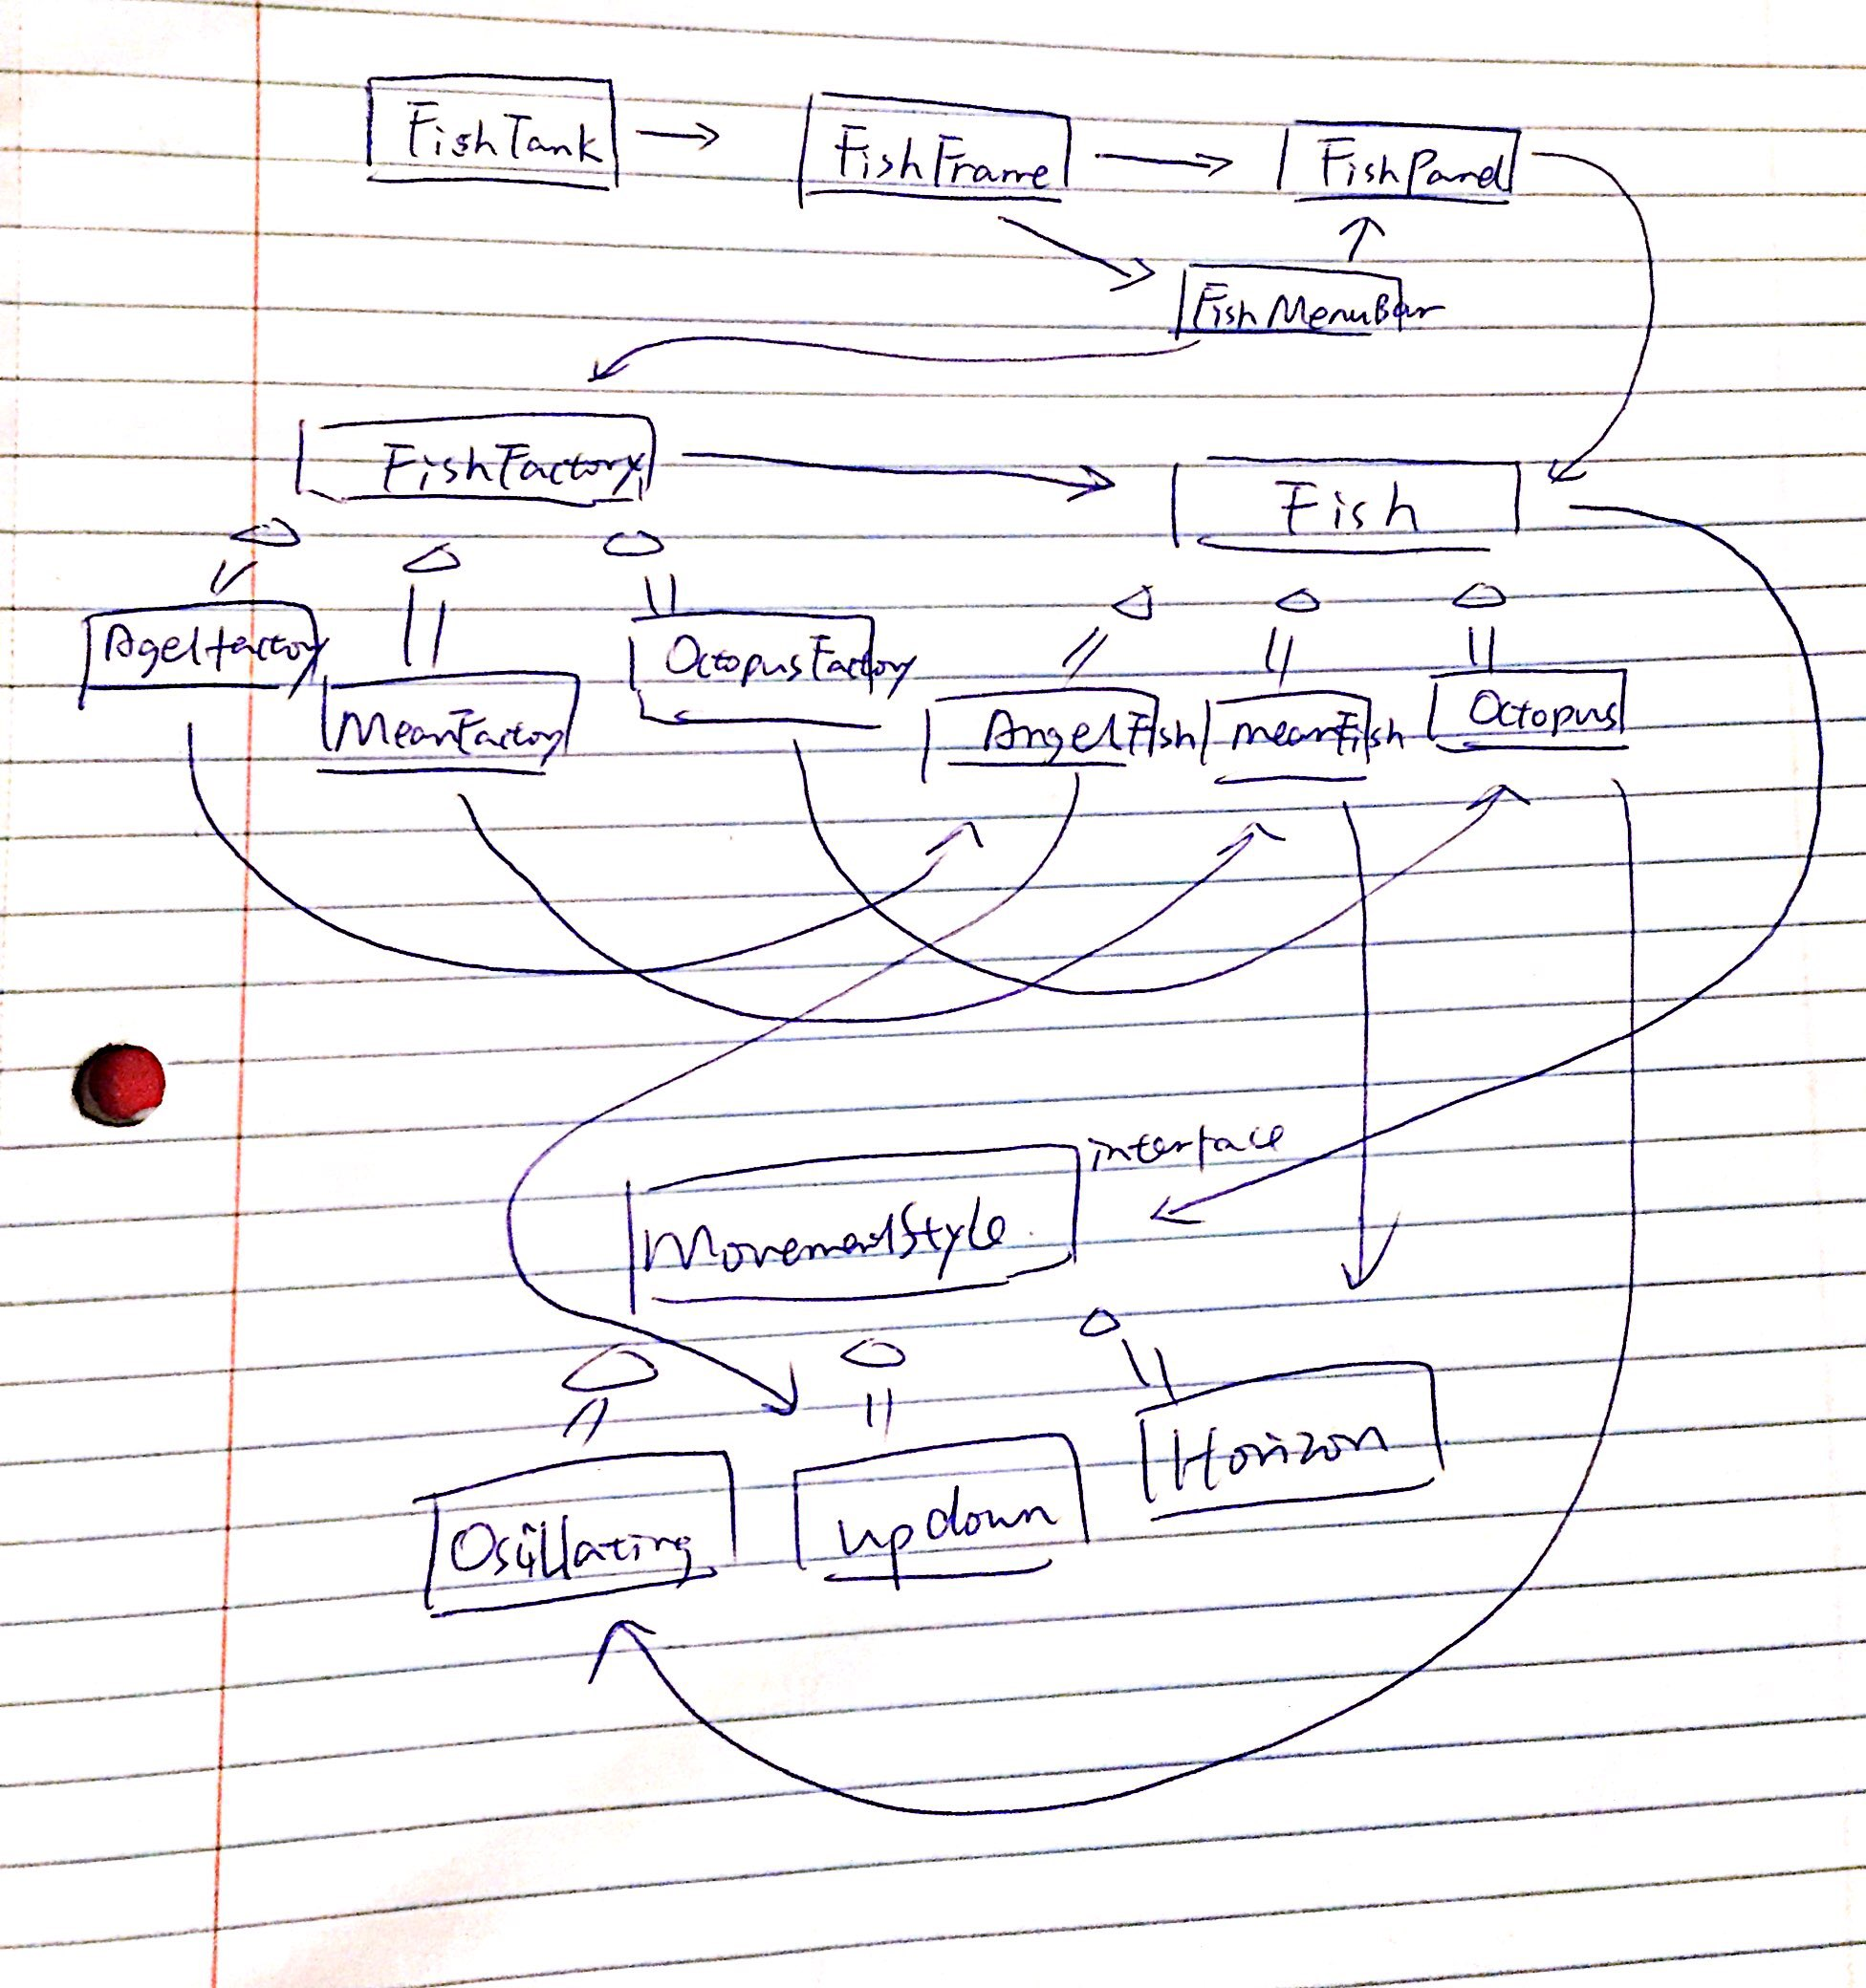 FishTank
FishFrame
FishPanel
FishMenuBar
FishFactory
Fish
Agelfactory
OctopusFactory
MeanFactory
AngelFish
meanFish
Octopus
interface
MovementStyle
Horizon
updown
Oscillating